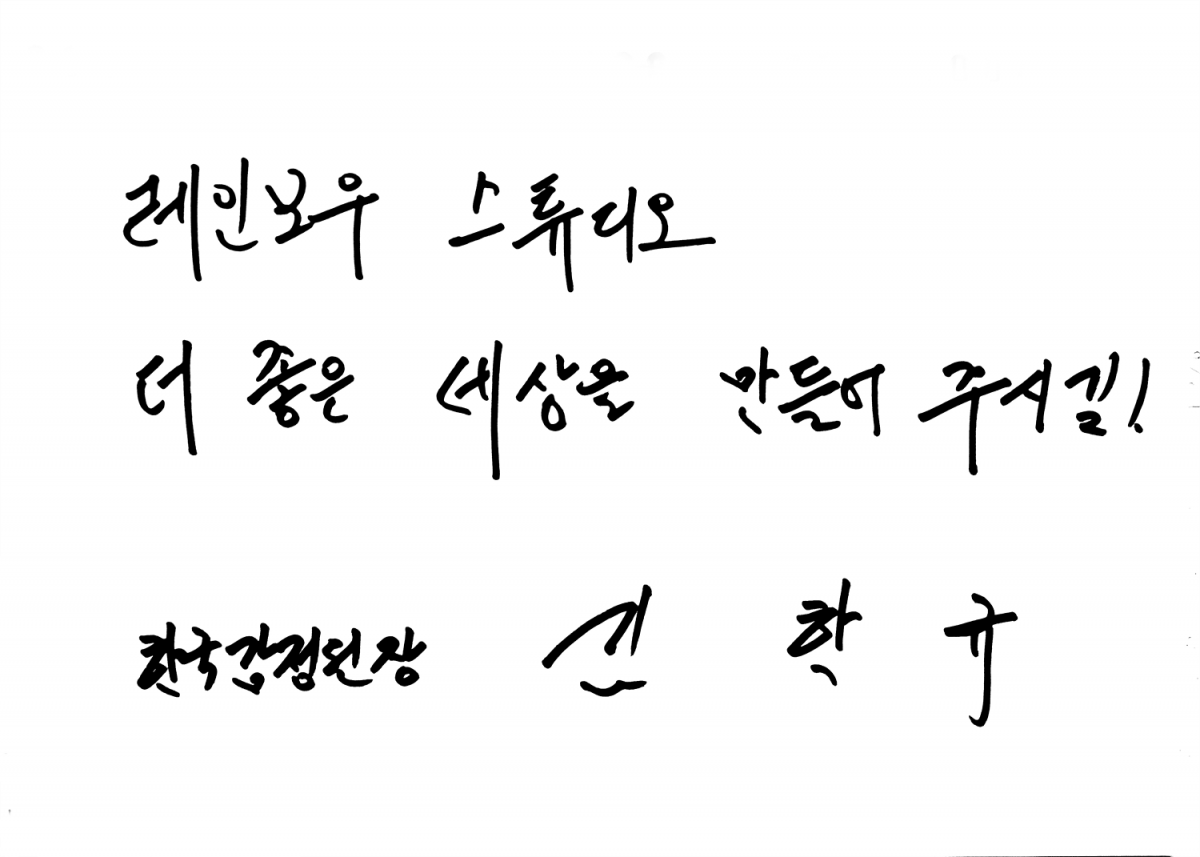 레인보우 스튜디오
더 좋은 세상을 만들어 주시길!
한국감정원장 김 학 규